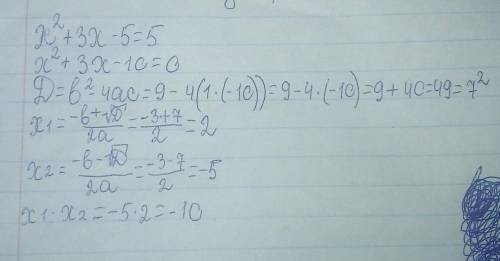 x² + 3x - 5 = 5
x² + 3x - 10 = 0
D = b² - 4ac = 9 - 4(1·(-10)) = 9 - 4·(-10) = 9 + 40 = 49 = 7²
x₁ = (-b+√D)/2a = (-3+7)/2 = 2
x₂ = (-b-√D)/2a = (-3-7)/2 = -5
x₁·x₂ = -5·2 = -10